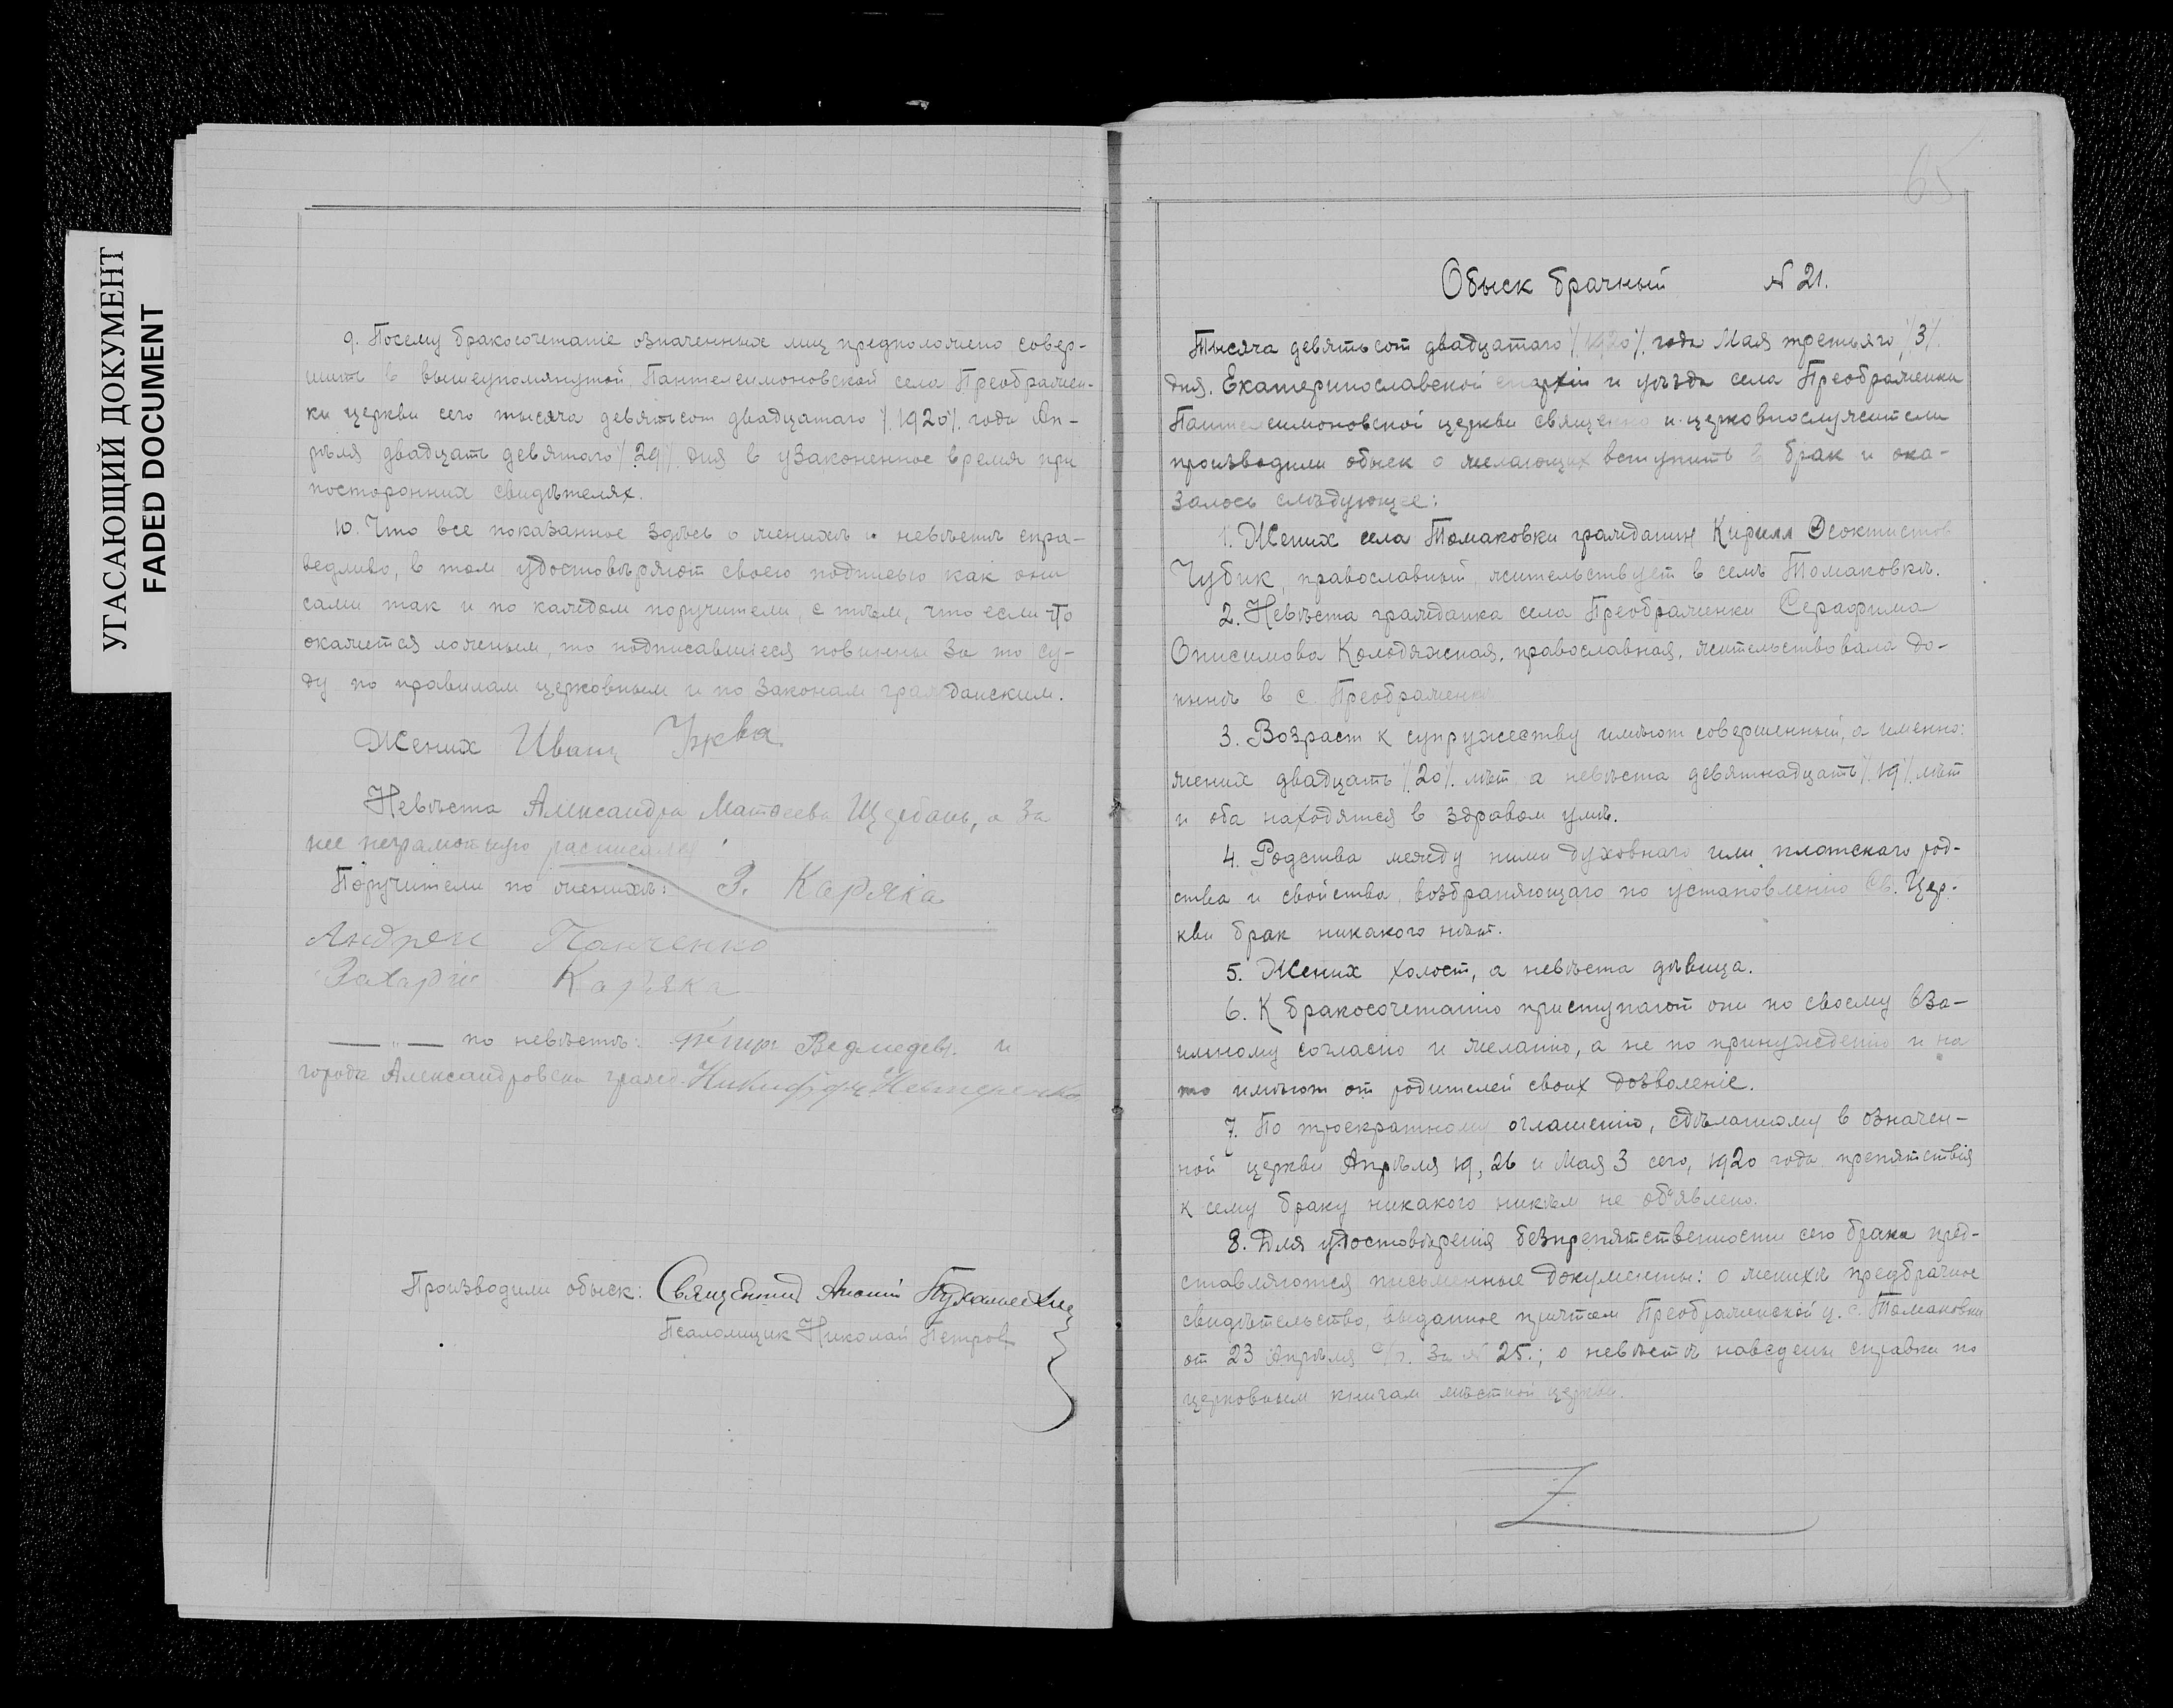 УГАСАЮЩИЙ ДОКУМЕНТ
FADED DOCUMENT
9. Посему бракосочетаніе означенных лиц предположено совер-
шить в вышеупомянутой Пантелеимоновской села Преображен-
ки церкви сего тысяча девятьсот двадцатаго /.1920/. года Ап-
рѣля двадцать девятаго /.29/ дня в узаконенное время при
посторонних свидѣтелях.
10. Что все показанное здѣсь о женихѣ и невѣстѣ спра-
ведливо, в том удостовѣряют своею подписью как они
сами так и по каждом поручители, с тѣм, что если что
окажется ложным, то подписавшіеся повинны за то су-
ду по правилам церковным и по законам гражданским.
Жених Иван
Невѣста Александра Матѳеева Щербань, а за
нее неграмотную расписался
Поручители по женихѣ: З. Каряка
Андреи Панченко
Захарій Каряка
— „ — по невѣстѣ: Ведмедев. и
города Александровска гражд. Никифор Нестеренко
Производили обыск: Священник
Псаломщик Николай Петров
65
Обыск брачный N 21.
Тысяча девятьсот двадцатаго /.1920/. года Мая третьяго /.3/.
дня. Екатеринославской епархіи и уѣзда села Преображенки
Пантелеимоновской церкви священно и церковнослужители
производили обыск о желающих вступить в брак и ока-
залось слѣдующее:
1. Жених села Томаковки гражданин Кирилл Ѳеоктистов
Чубик, православный, жительствует в селѣ Томаковкѣ.
2. Невѣста гражданка села Преображенки Серафима
Онисимова Колодяжная, православная, жительствовала до-
нынѣ в с. Преображенкѣ
3. Возраст к супружеству имѣют совершенный, а именно:
жених двадцать /.20/. лѣт, а невѣста девятнадцать /.19/. лѣт
и оба находятся в здравом умѣ.
4. Родства между ними духовнаго или плотскаго род-
ства и свойства, возбраняющаго по установленію Св. Цер-
кви брак никакого нѣт.
5. Жених холост, а невѣста дѣвица.
6. К бракосочетанію приступают они по своему вза-
имному согласію и желанію, а не по принужденію и на
то имѣют от родителей своих дозволеніе.
7. По троекратному оглашенію, сдѣланному в означен-
ной церкви Апрѣля 19, 26 и Мая 3 сего, 1920 года препятствія
к сему браку никакого никѣм не объявлено.
8. Для удостовѣренія безпрепятственности сего брака пред-
ставляются письменные документы: о женихѣ предбрачное
свидѣтельство, выданное причтом Преображенской ц. с. Томаковки
от 23 Апрѣля с/г. за N 25.; о невѣстѣ наведены справки по
церковным книгам мѣстной церкви.